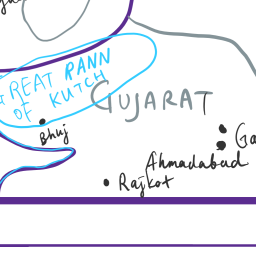 GREAT RANN
OF KUTCH
GUJARAT
Bhuj
Ga
Ahmadabad
Rajkot